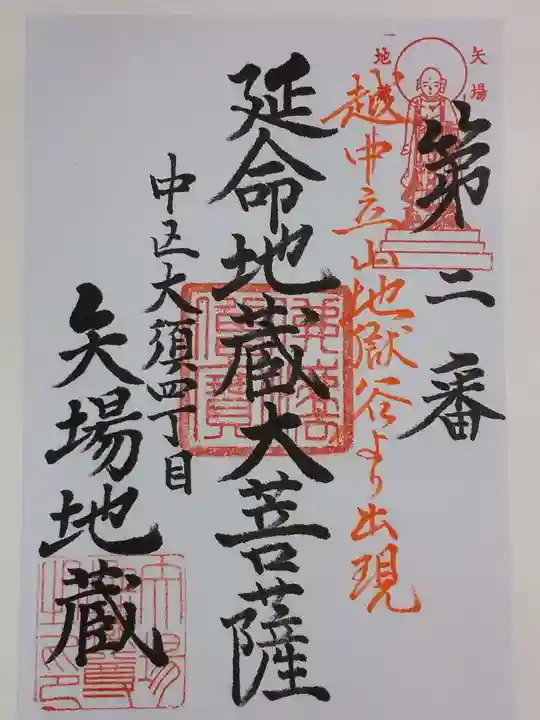 第二番
越中立山地獄谷より出現
延命地蔵大菩薩
中区大須四丁目
矢場地蔵
佛法僧寳